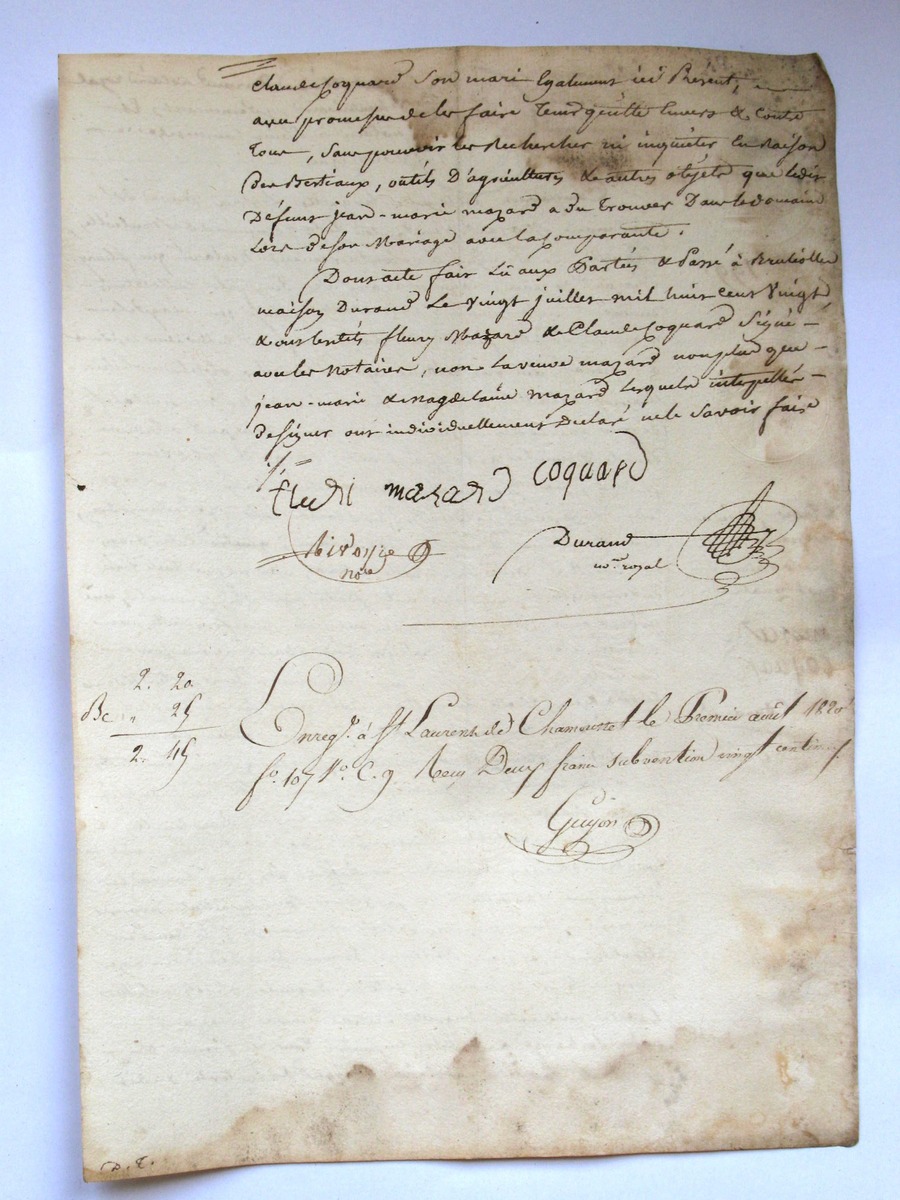 Claude Coquard Son mari Egalement ici Présent,
avec promesse de les faire Tenir quitte Envers & Contre
Tous, Sans pouvoir les Rechercher ni inquieter En Raison
Des Bestiaux, outils D'agricultures & autres objets que ledit
Défunt jean-marie mazard a Du Trouver Dans le domaine
Lors de Son Mariage avec la Comparante.
Dont acte fait Lû aux Parties & Passé à Brulliolles
maison Durand Le Vingt juillet mil huit cent Vingt
& ont lesdits fleury Mazard & Claude Coquard Signé
avec les Notaires, non la veuve mazard non plus que
jean-marie & magdelaine mazard Lesquels interpellés
De signer ont individuellement Declaré ne le Savoir faire
fleuri mazard coquard
Durand
nore
nore royal
2. 20
Enregt. à St Laurent de Chamousset le Premier août 1820
Bc " 25
2. 45
fo. 107 Vo. C. 9 Reçu Deux francs subvention vingt centimes.
Guyon